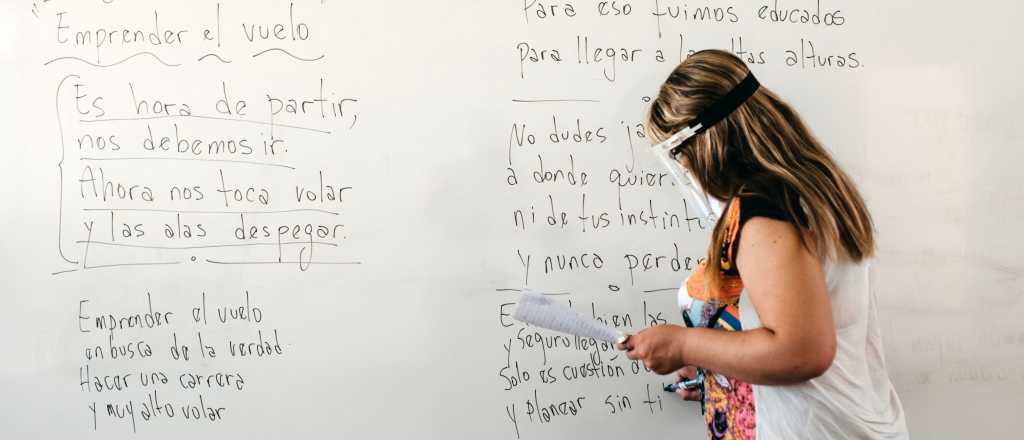 Emprender el vuelo
Es hora de partir,
nos debemos ir.
Ahora nos toca volar
y las alas despegar.
Emprender el vuelo
en busca de la verdad
Hacer una carrera
y muy alto volar
Para eso fuimos educados
Para llegar a alturas.
No dudes
a donde
ni de tus
y nunca
bien las
y seguro
Solo es cuestión
y planear sin ti